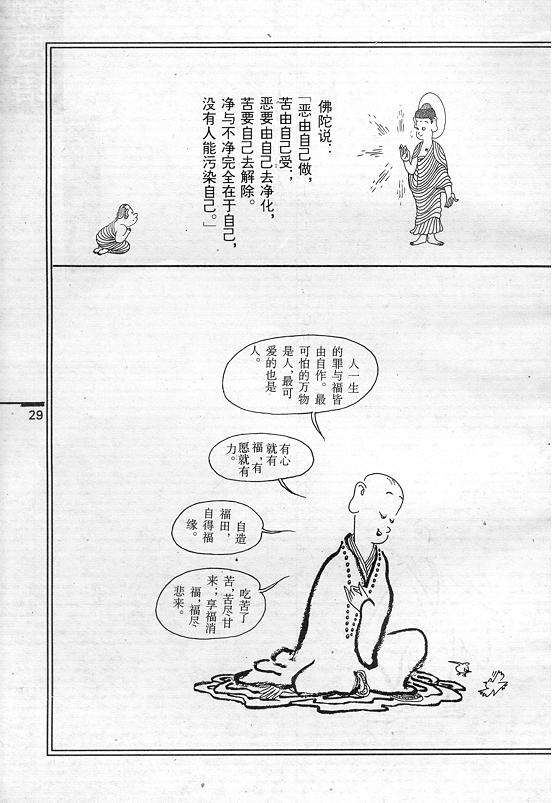 佛陀说：
「恶由自己做，
苦由自己受；
恶要由自己去净化，
苦要自己去解除。
净与不净完全在于自己，
没有人能污染自己。」
人一生
的罪与福皆
由自作。最
可怕的万物
是人，最可
爱的也是
人。
有心
就有
福，有
愿就有
力。
自造
福田，
自得福
缘。
吃苦了
苦；苦尽甘
来；享福消
福，福尽
悲来。
29